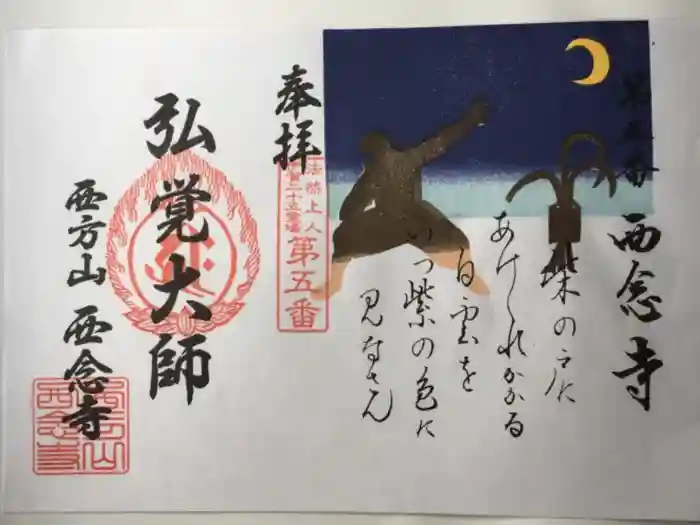 第五番 西念寺
柴の戸に
あけくれかかる
白雲を
いつ紫の色に
見なさん
奉拝
法然上人
滋賀二十五霊場
第五番
弘覚大師
西方山 西念寺
西念寺